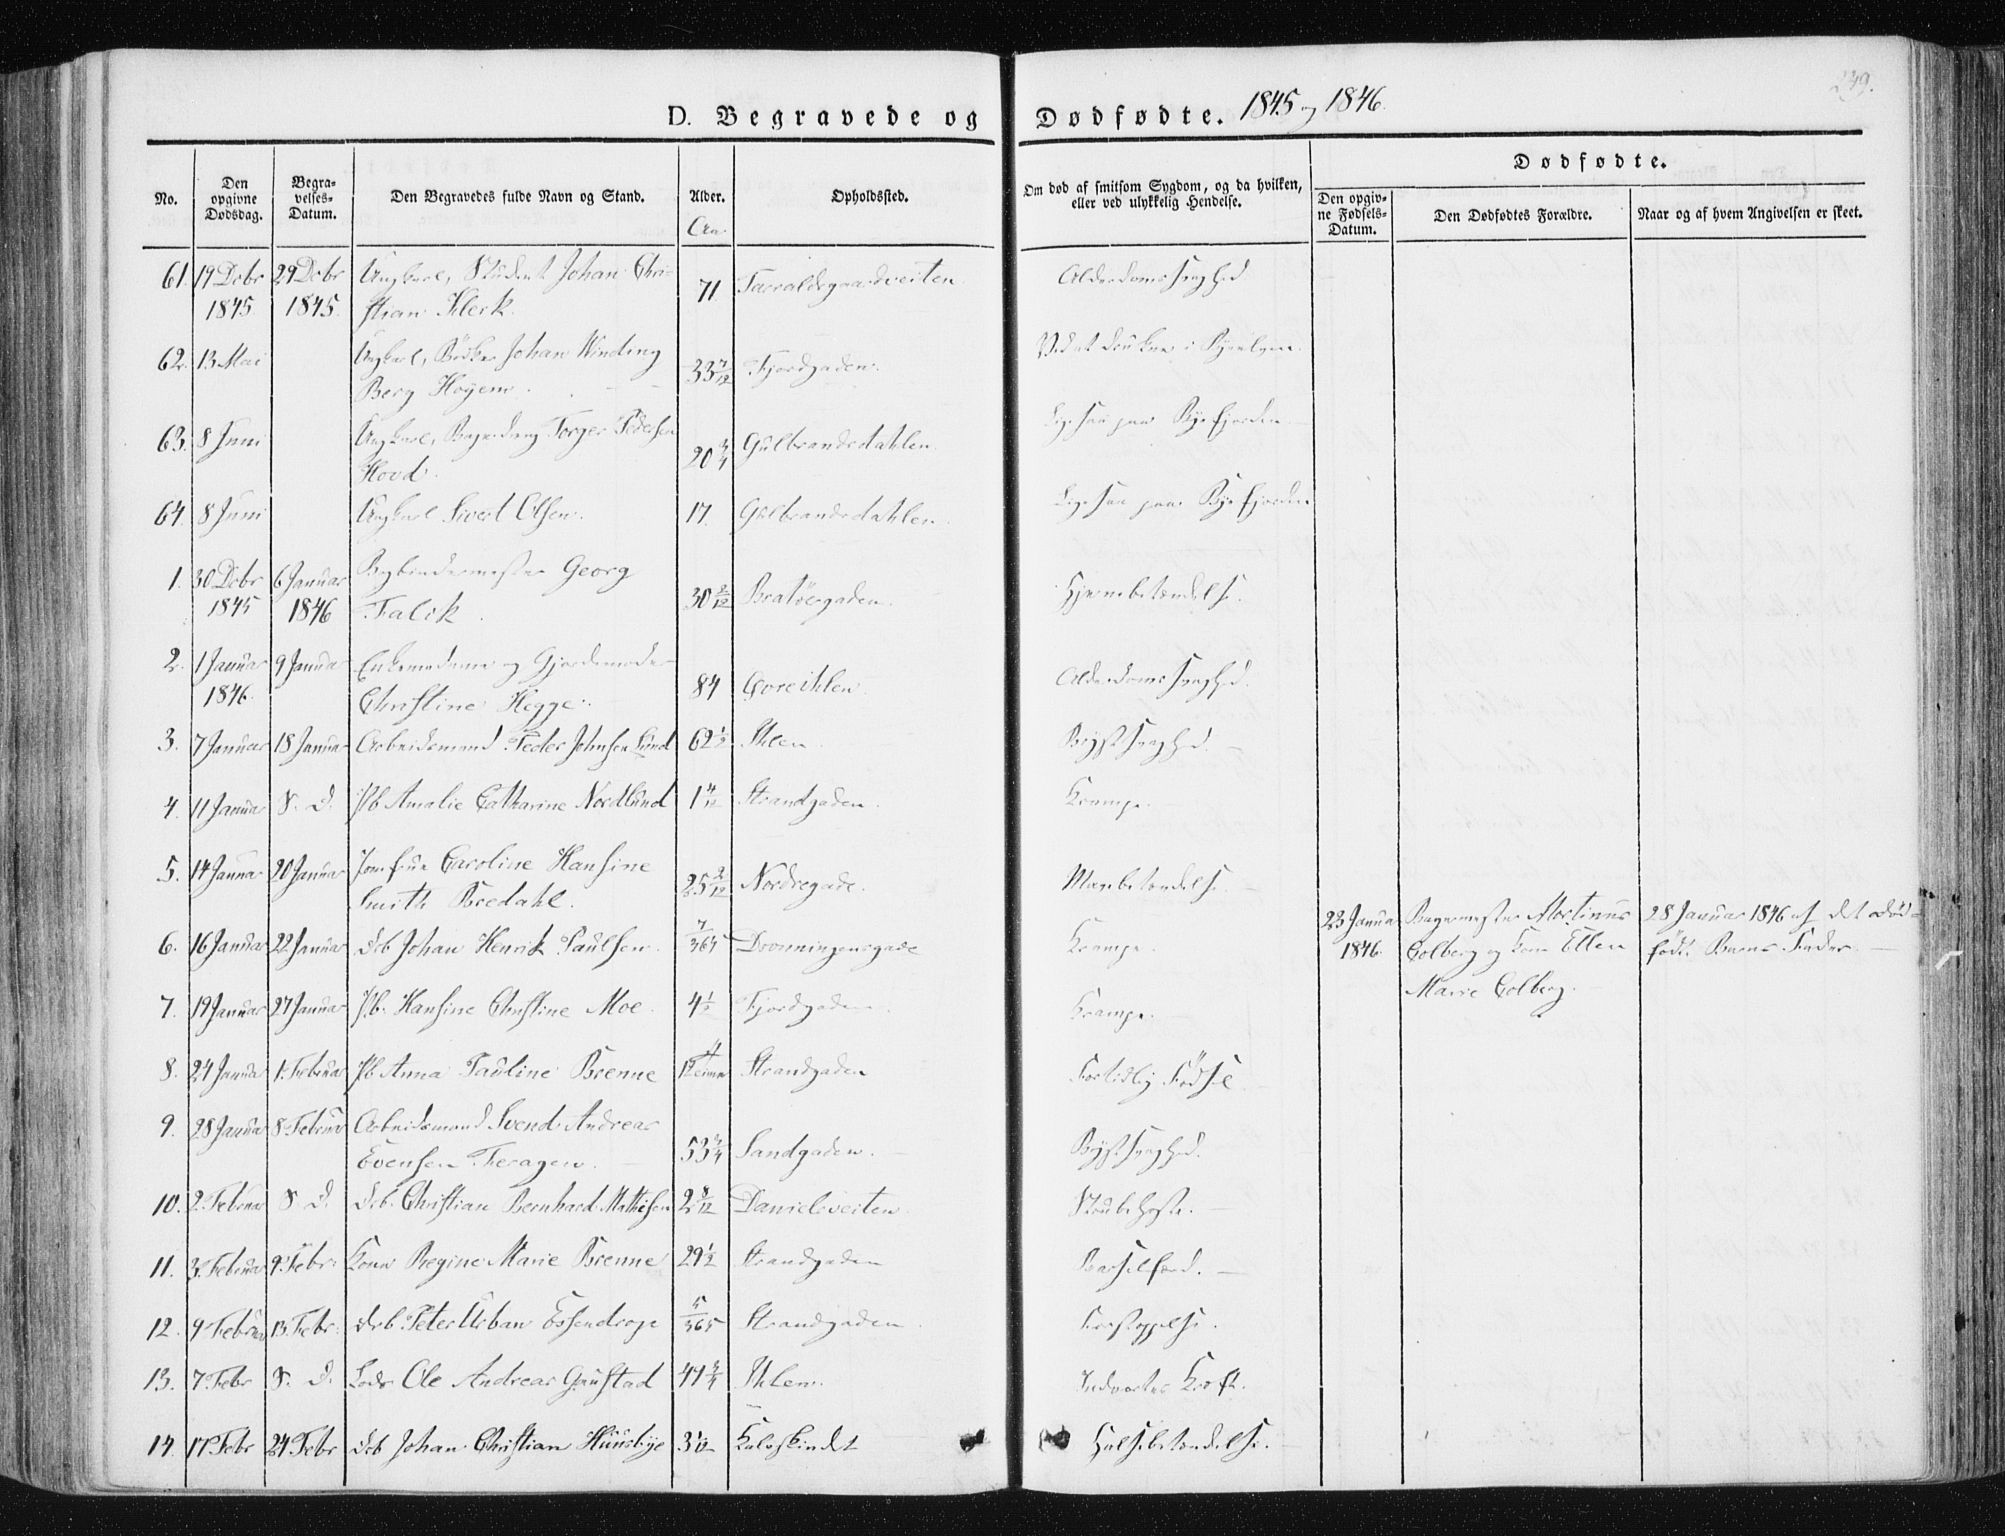 249.
D. Begravede og Dødfødte. 1845 og 1846.
No.
Den opgivne Dødsdag.
Begravelses-Datum.
Den Begravedes fulde Navn og Stand.
Alder.
Opholdssted.
Om død af smitsom Sygdom, og da hvilken, eller ved ulykkelig Hendelse.
Dødfødte.
Den opgivne Fødsels-Datum.
Den Dødfødtes Forældre.
Naar og af hvem Angivelsen er skeet.
Aar
61. 19 Decbr 29 Decbr Ungkarl, Student Johan Chri- 71 Taraldsgaardveiten Alderdomssvaghed
1845 1845. stian Klerk.
62. 13 Mai Ungkarl, Bødker Johan Winding 33 7/12 Fjordgaden. Ved at drukne i Byeelven.
Berg Høyem.
63. 8 Juni Ungkarl, Torger Pedersen 20 3/4 Gulbrandsdahlen. Ligesaa paa Byefjorden
Hovd.
64. 8 Juni Ungkarl Sivert Olsen. 17 Gulbrandsdahlen. Ligesaa paa Byefjorden
1. 30 Decbr 6 Januar Bogbindermester Georg 30 2/12 Bratøergaden. Hjernebetændelse.
1845 1846 Falck.
2. 1 Januar 9 Januar Enkemadame og Gjordemoder 84 Øvreihlen. Alderdomssvaghed.
1846. Christine Hegge.
3. 7 Januar 18 Januar Arbeidsmand Peder Johnsen Lund 62 1/2 Ihlen. Brystsvaghed.
4. 11 Januar S. D. Pb Amalie Catharine Nordlund 1 4/12 Strandgaden. Krampe.
5. 14 Januar 20 Januar Jomfrue Caroline Hansine 25 2/12 Nordregade. Mavebetændelse.
Smith Bredahl.
6. 16 Januar 22 Januar Drb Johan Henrik Paulsen. 7/365 Dronningensgade Krampe.
23 Januar Bagermester Mortinus 28 Januar 1846 af det død-
1846. Colberg og Kone Ellen fødte Barns Fader.
Marie Colberg.
7. 19 Januar 27 Januar Pb. Hansine Christine Moe. 4 1/2 Fjordgaden. Krampe.
8. 24 Januar 1. Februar Pb Anna Pauline Brenne Strandgaden Fortidlig Fødsel
9. 28 Januar 8 Februar Arbeidsmand Svend Andreas
Evensen Feragen. 53 3/4 Sandgaden. Brystsvaghed.
10. 2. Februar S. D. Drb. Christian Bernhard Mathisen 2 8/12 Danielsveiten. Strubehoste.
11. 3. Februar 9. Febr: Kone Regine Marie Brenne 29 1/2 Strandgaden Barselfærd.
12. 9 Februar 13. Febr: Drb Peter Urban Essendrop 5/365 Strandgaden. Forstoppelse.
13. 7. Febr S. D. Lods Ole Andreas Gaustad 49 3/4 Ihlen. Indvortes Kræft.
14. 17. Febr 24. Febr Drb Johan Christian Huusbye 3 1/12 Kalvskindet Halsebetændelse.